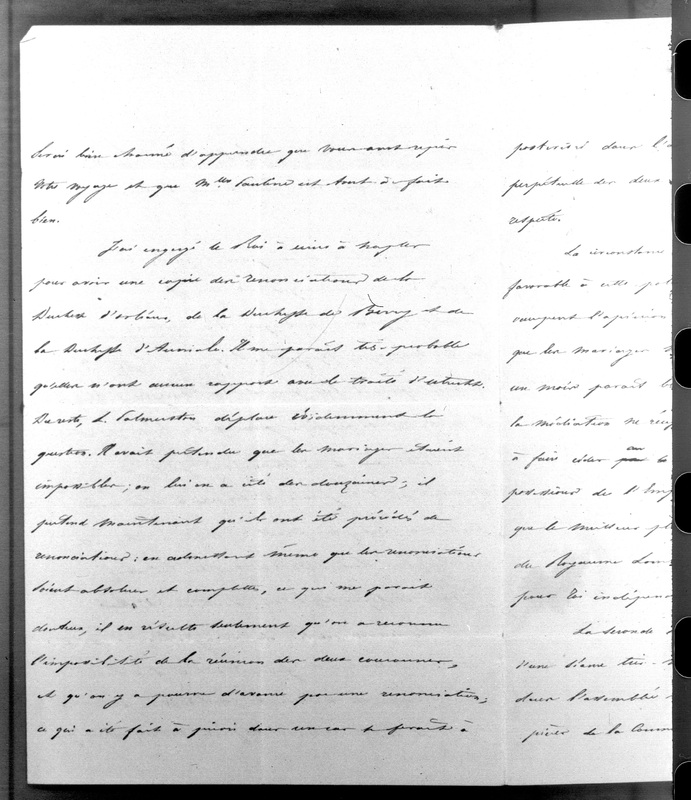 serai bien charmé d'apprendre que vous avez repris
votre voyage et que Mlle Pauline est tout à fait
bien.
J'ai engagé le Roi à écrire à Naples
pour avoir une copie des renonciations de la
Duchesse d'orléans, de la Duchesse de Berry et de
la Duchesse d'Aumale. Il me paraît très probable
qu'elles n'ont aucun rapport avec le traité d'utrecht.
Du reste, L. Palmerston déplace évidemment la
question. Il avait prétendu que les mariages étaient
impossibles; on lui en a cité des douzaines; il
prétend maintenant qu'ils ont été précédés de
renonciations: en admettant même que les renonciations
soient absolues et complettes, ce qui me paraît
douteux, il en résulte seulement qu'on a reconnu
l'impossibilité de la réunion des deux couronnes,
et qu'on y a pourvu d'avance par une renonciation;
ce qui a été fait à priori dans un cas se ferait à
postériori dans l'a
perpétuelle des deux
respectée.
La circonstance
favorable à cette
occupent l'opinion
que les mariages
un mois paraît
la médiation ne
à faire céder au
possessions de l'Em
que le meilleur
du Royaume Lom
pour les indigen
La seconde
d'une séance très
dans l'assemblée
de la Comm